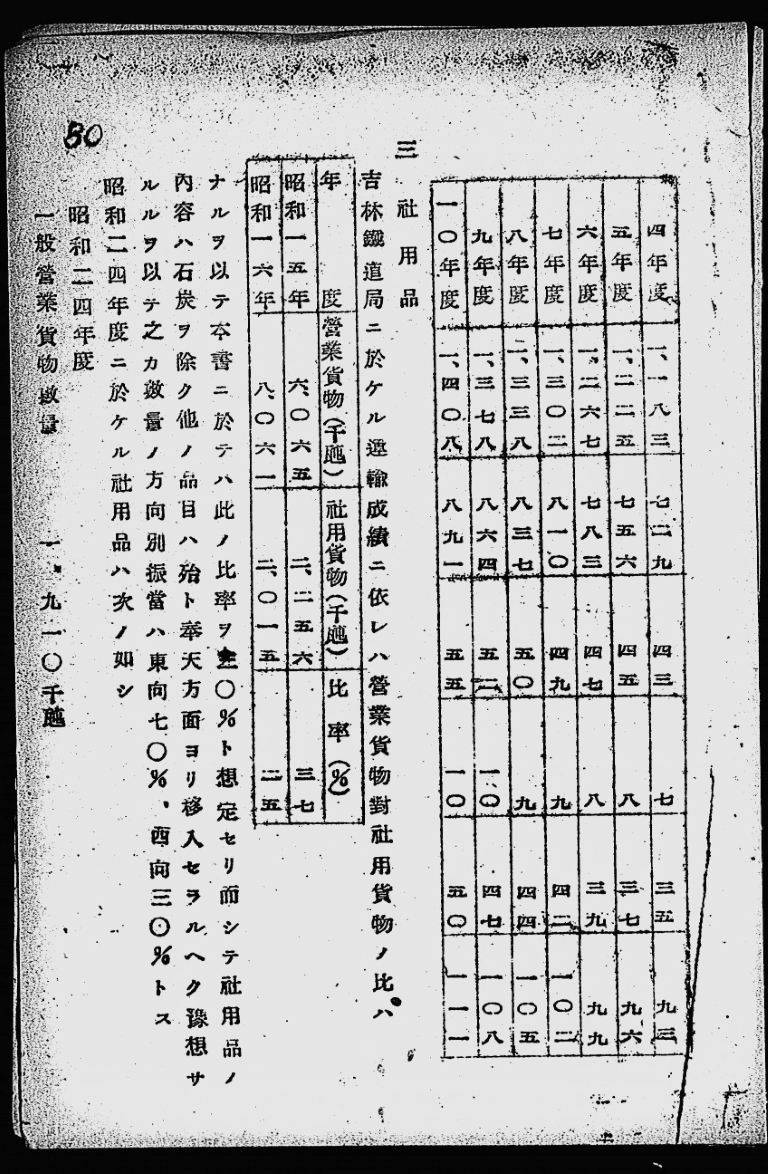 80
四年度 一、一八三 七二九 四三 七 三五 九三
五年度 一、二二五 七五六 四五 八 三七 九六
六年度 一、二六七 七八三 四七 八 三九 九九
七年度 一、三〇二 八一〇 四九 九 四二 一〇二
八年度 一、三三八 八三七 五〇 九 四四 一〇五
九年度 一、三七八 八六四 五二 一〇 四七 一〇八
一〇年度 一、四〇八 八九一 五五 一〇 五〇 一一一
三 社用品
吉林鐵道局ニ於ケル運輸成績ニ依レハ營業貨物對社用貨物ノ比ハ
年度 營業貨物(千瓲) 社用貨物(千瓲) 比率(%)
昭和一五年 六、〇六五 二、二五六 三七
昭和一六年 八、〇六一 二、〇一五 二五
ナルヲ以テ本書ニ於テハ此ノ比率ヲ〇%ト想定セリ而シテ社用品ノ
內容ハ石炭ヲ除ク他ノ品目ハ殆ト奉天方面ヨリ移入セラルヘク豫想サ
ルルヲ以テ之カ數量ノ方向別振當ハ東向七〇%、西向三〇%トス
昭和二四年度ニ於ケル社用品ハ次ノ如シ
昭和二四年度
一般營業貨物數量 一、九一〇千瓲